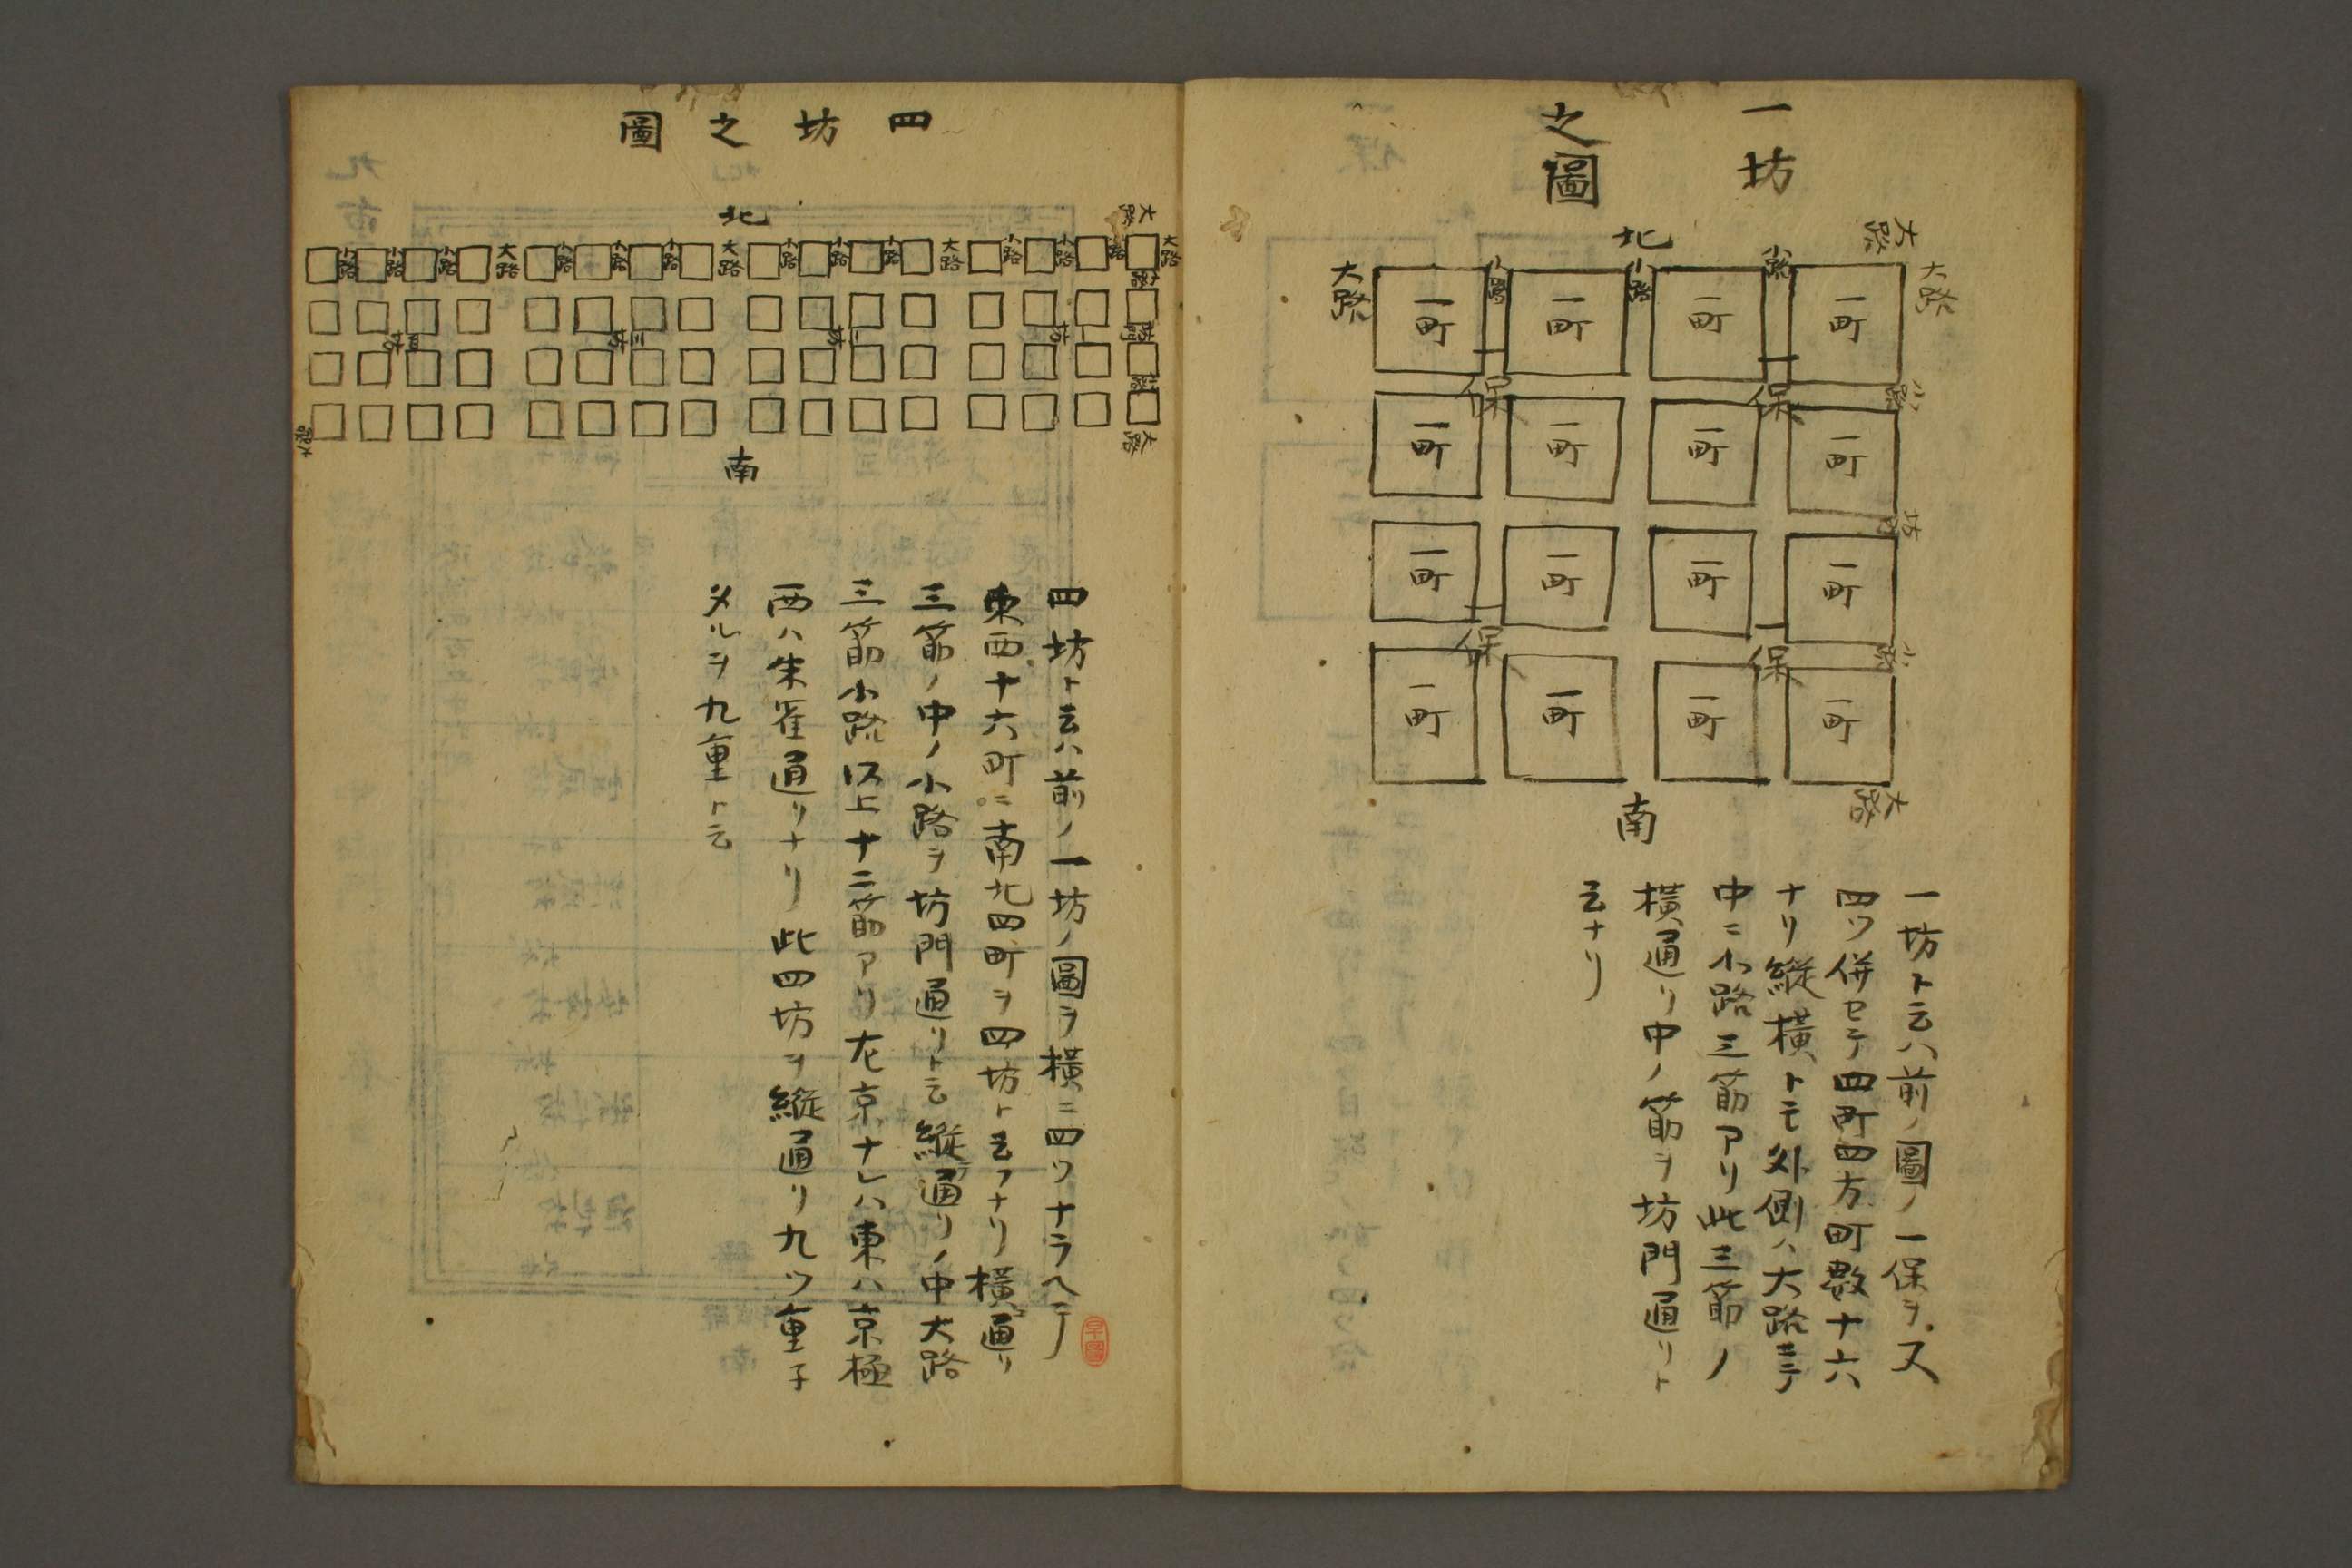 一坊
之圖
北
大路
大路
大路
小路
小路
小路
一町
一町
一町
一町
一保
一保
小路
一町
一町
一町
一町
坊門
一町
一町
一町
一町
一保
一保
小路
一町
一町
一町
一町
大路
南
一坊ト云ハ前ノ圖ノ一保ヲ又
四ツ併セテ四町四方町数十六
ナリ縦横トモ外側ハ大路ニテ
中ニ小路三筋アリ此三筋ノ
横通リ中ノ筋ヲ坊門通リト
云ナリ
四坊之圖
北
大路
大路
小路
小路
小路
大路
小路
小路
小路
大路
小路
小路
小路
大路
小路
小路
小路
小路
一坊
二坊
三坊
四坊
坊門
小路
大路
大路
南
四坊ト云ハ前ノ一坊ノ圖ヲ横ニ四ツナラヘテ
東西十六町ニ南北四町ヲ四坊ト云フナリ横通リ
三筋ノ中ノ小路ヲ坊門通リト云縦通リノ中大路
三筋小路以上十二筋アリ左京ナレハ東ハ京極
西ハ朱雀通リナリ此四坊ヲ縦通リ九ツ重子
タルヲ九重ト云